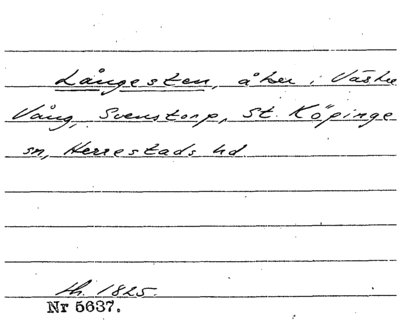 Långesten, åker i Västre
Vång, Svenstorp, St. Köpinge
sn, Herrestads hd
h. 1825.
Nr 5637.